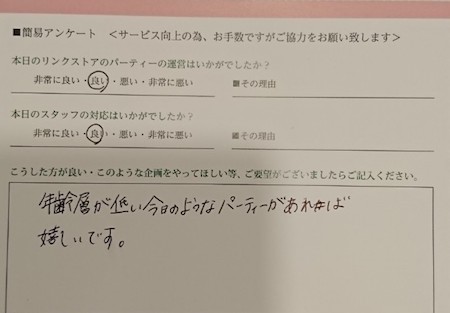 ■簡易アンケート ＜サービス向上の為、お手数ですがご協力をお願い致します＞
本日のリンクストアのパーティーの運営はいかがでしたか？
非常に良い・良い・悪い・非常に悪い ■その理由
本日のスタッフの対応はいかがでしたか？
非常に良い・良い・悪い・非常に悪い ■その理由
こうした方が良い・このような企画をやってほしい等、ご要望がございましたらご記入ください。
年齢層が低い今日のようなパーティーがあれば
嬉しいです。